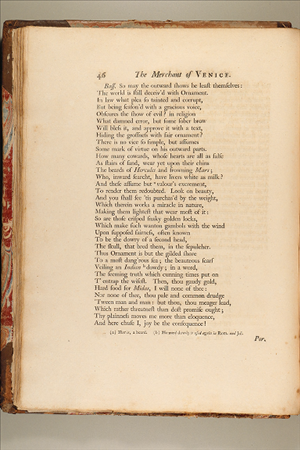 46 The Merchant of VENICE.
Bass. So may the outward shows be least themselves:
The world is still deceiv'd with Ornament.
In law what plea so tainted and corrupt,
But being season'd with a gracious voice,
Obscures the show of evil? in religion
What damned error, but some sober brow
Will bless it, and approve it with a text,
Hiding the grossness with fair ornament?
There is no vice so simple, but assumes
Some mark of virtue on his outward parts.
How many cowards, whose hearts are all as false
As stairs of sand, wear yet upon their chins
The beards of Hercules and frowning Mars;
Who, inward searcht, have livers white as milk?
And these assume but valour's excrement,
To render them redoubted. Look on beauty,
And you shall see 'tis purchas'd by the weight,
Which therein works a miracle in nature,
Making them lightest that wear most of it:
So are those crisped snaky golden locks,
Which make such wanton gambols with the wind
Upon supposed fairness, often known
To be the dowry of a second head,
The skull, that bred them, in the sepulcher.
Thus Ornament is but the gilded shore
To a most dang'rous sea; the beauteous scarf
Veiling an Indian dowdy; in a word,
The seeming truth which cunning times put on
T' entrap the wisest. Then, thou gaudy gold,
Hard food for Midas, I will none of thee:
Nor none of thee, thou pale and common drudge
'Tween man and man: but thou, thou meager lead,
Which rather threatnest than dost promise ought;
Thy plainness moves me more than eloquence,
And here chuse I, joy be the consequence!
Por.